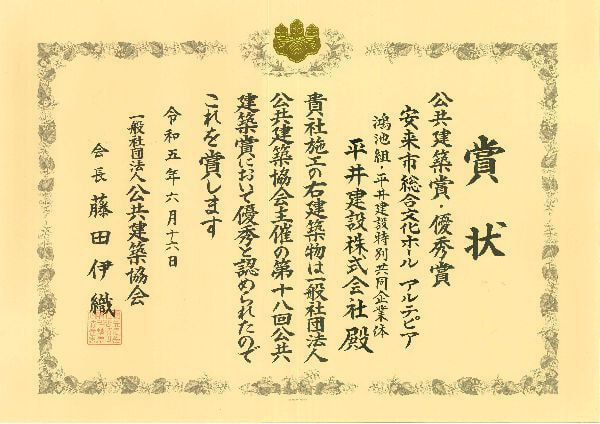 賞状
公共建築賞・優秀賞
安来市総合文化ホール アルテピア
鴻池組・平井建設特別共同企業体
平井建設株式会社 殿
貴社施工の右建築物は一般社団法人
公共建築協会主催の第十八回公共
建築賞において優秀と認められたので
これを賞します
令和五年六月十六日
一般社団法人 公共建築協会
会長 藤田伊織